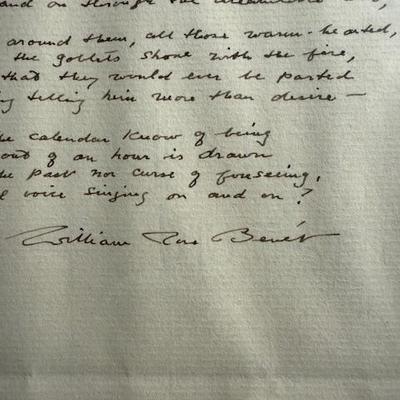 and on through the
around them, all those warm-hearted,
the goblets shone with the fire,
that they would ever be parted
telling him more than desire —
calendar know of being
out of an hour is drawn
the past nor curse of foreseeing,
voice singing on and on?
William Rose Benét